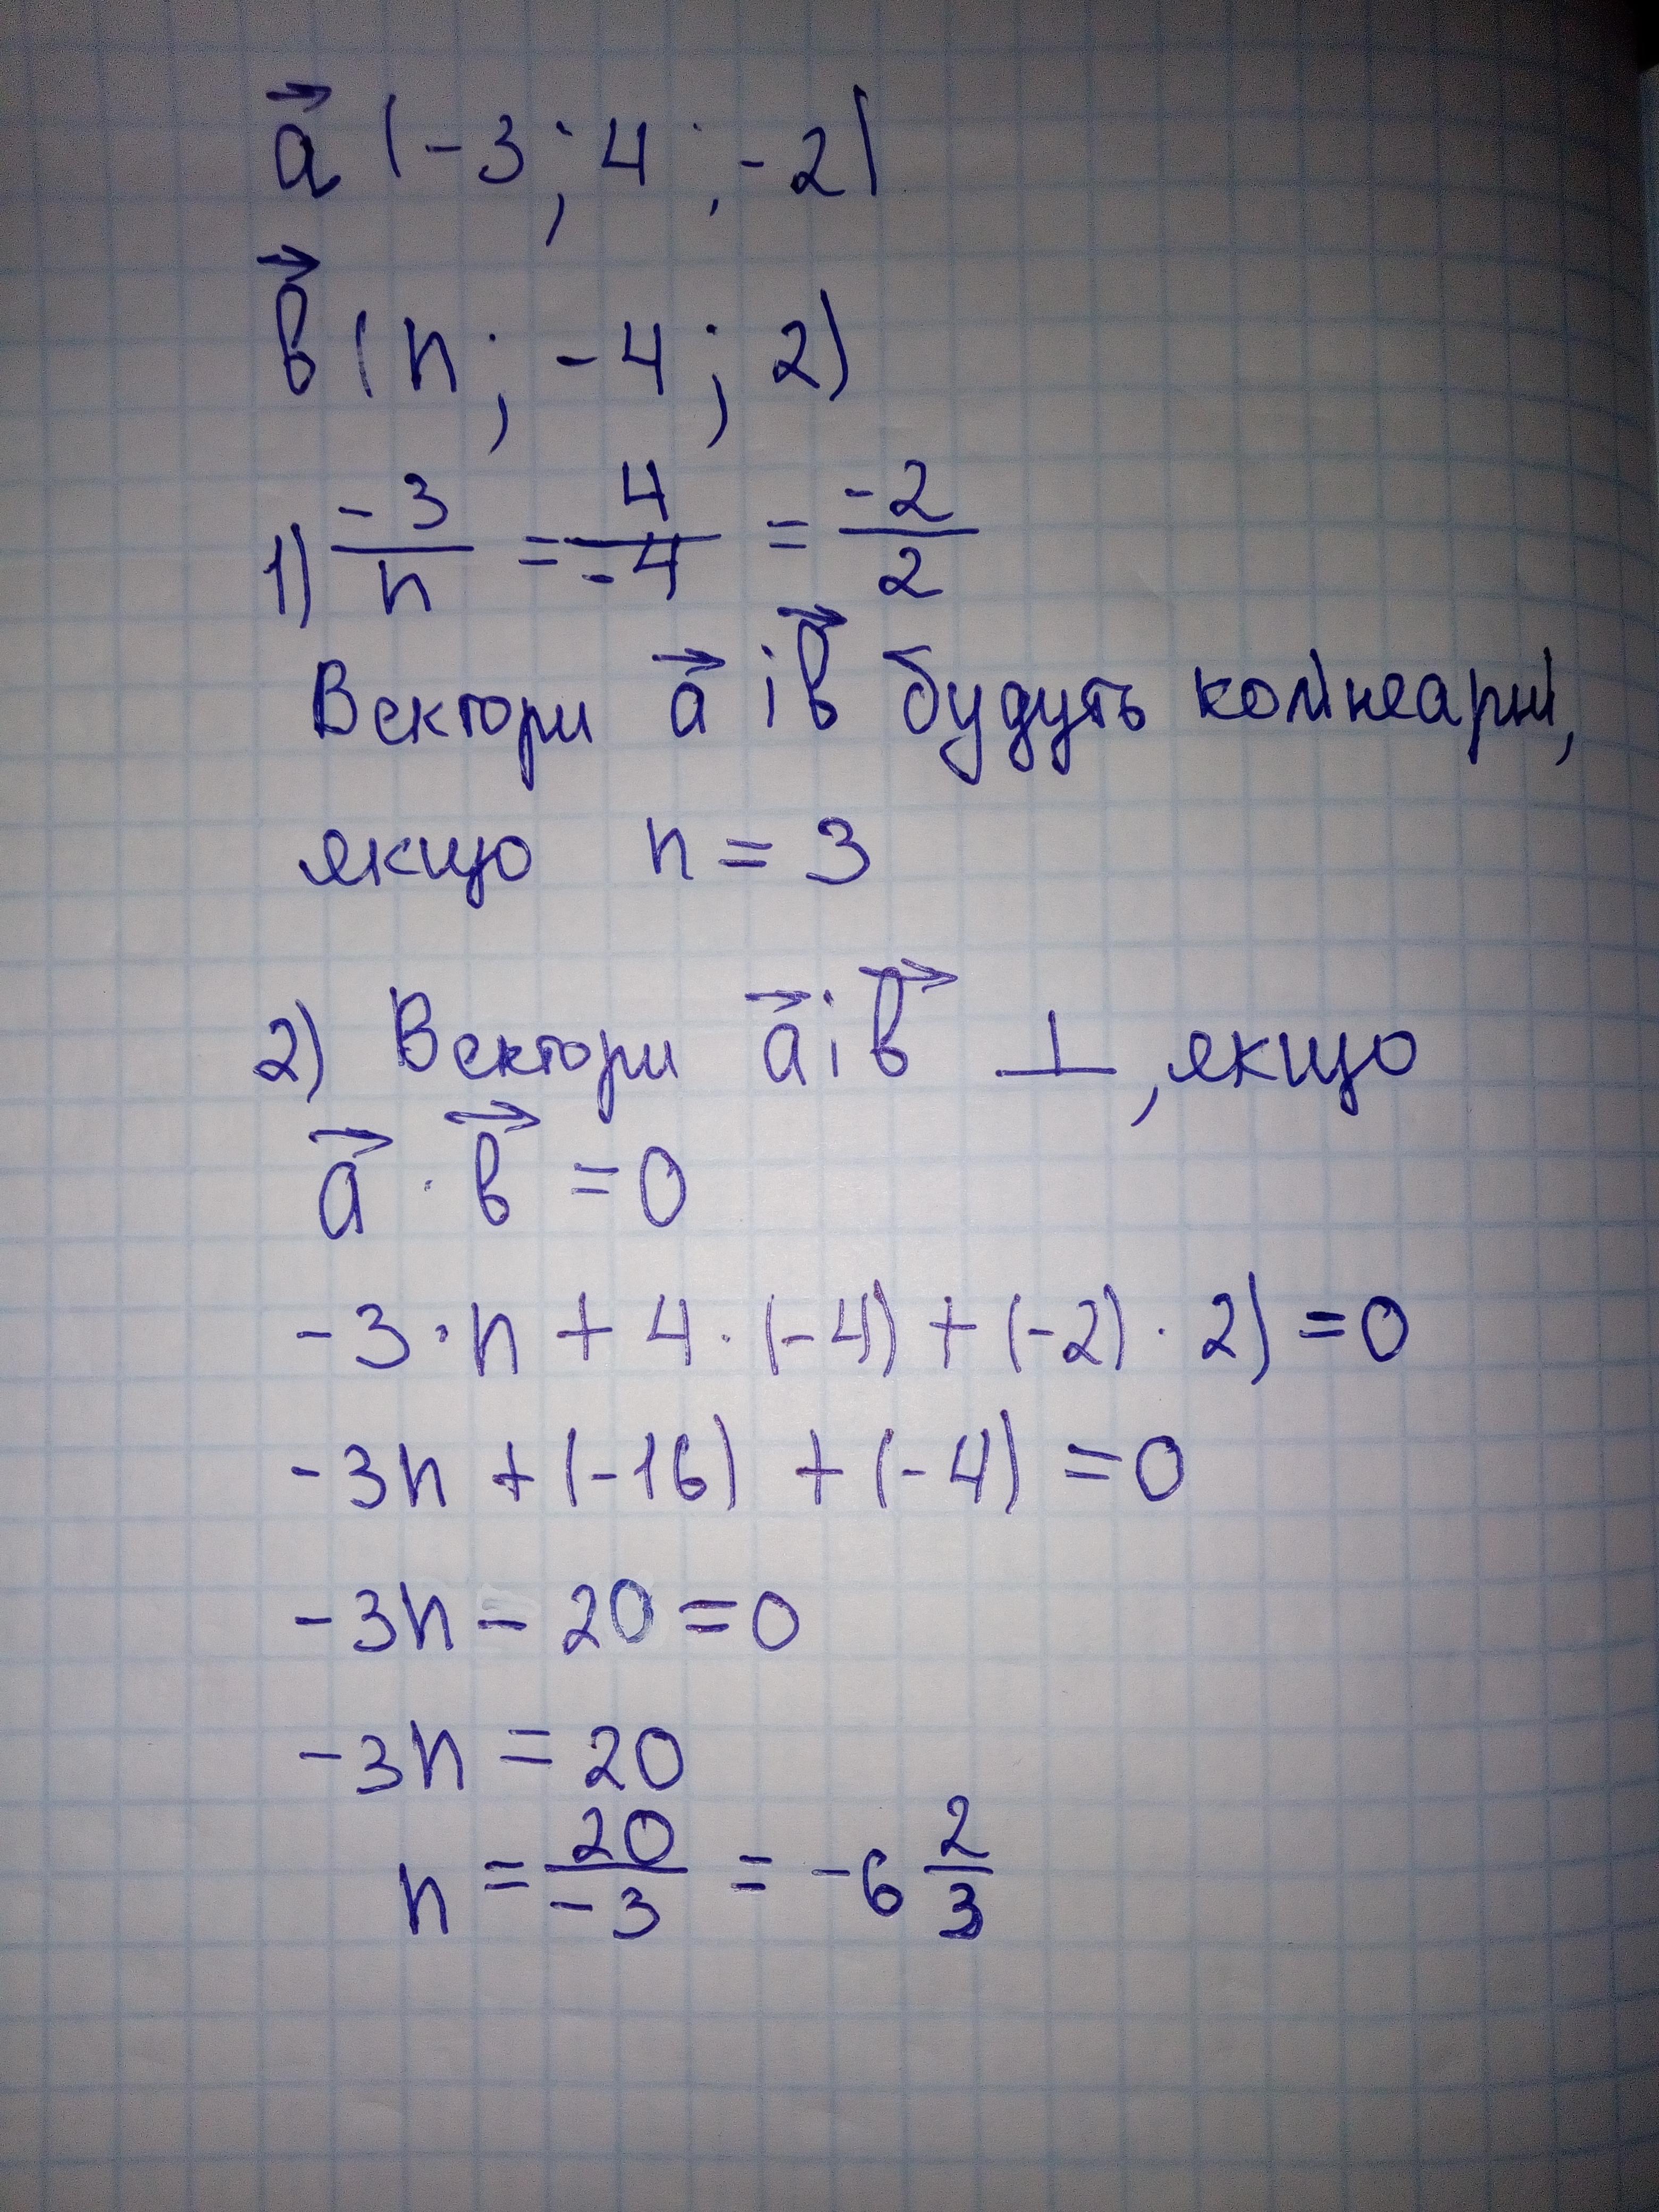 a⃗ (-3; 4; -2)
b⃗ (n; -4; 2)
1) -3/n = 4/-4 = -2/2
Вектори a⃗ і b⃗ будуть колінеарні,
якщо n = 3
2) Вектори a⃗ і b⃗ ⊥, якщо
a⃗ · b⃗ = 0
-3 · n + 4 · (-4) + (-2) · 2) = 0
-3n + (-16) + (-4) = 0
-3n - 20 = 0
-3n = 20
n = 20/-3 = -6 2/3